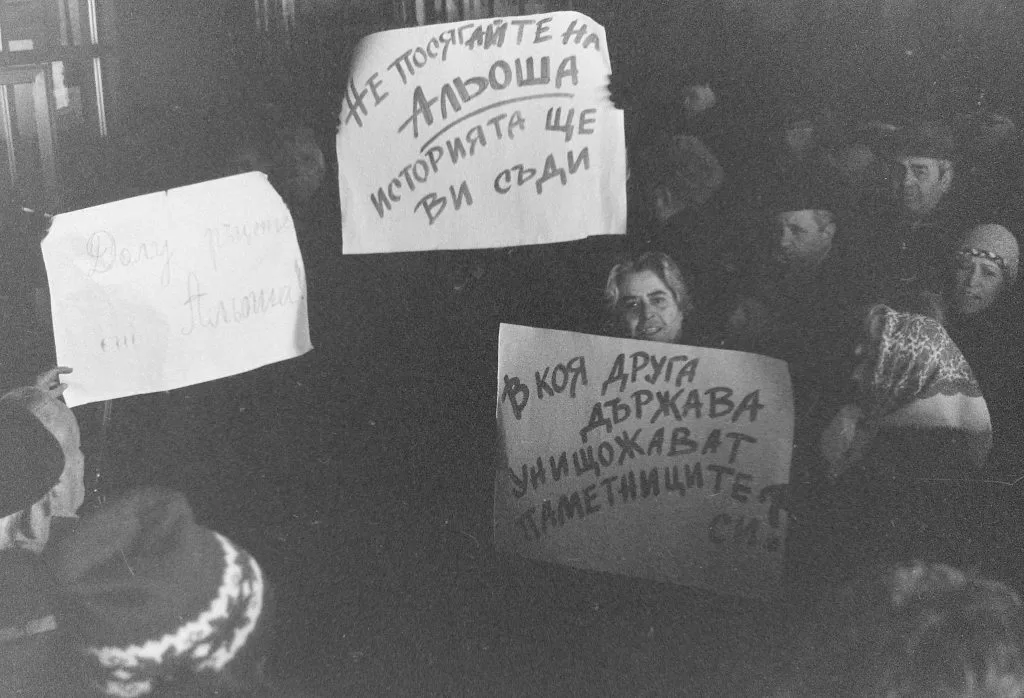 НЕ ПОСЯГАЙТЕ НА
АЛЬОША
ИСТОРИЯТА ЩЕ
ВИ СЪДИ
Долу ръцете
от
Альоша!
В КОЯ ДРУГА
ДЪРЖАВА
УНИЩОЖАВАТ
ПАМЕТНИЦИТЕ
СИ?